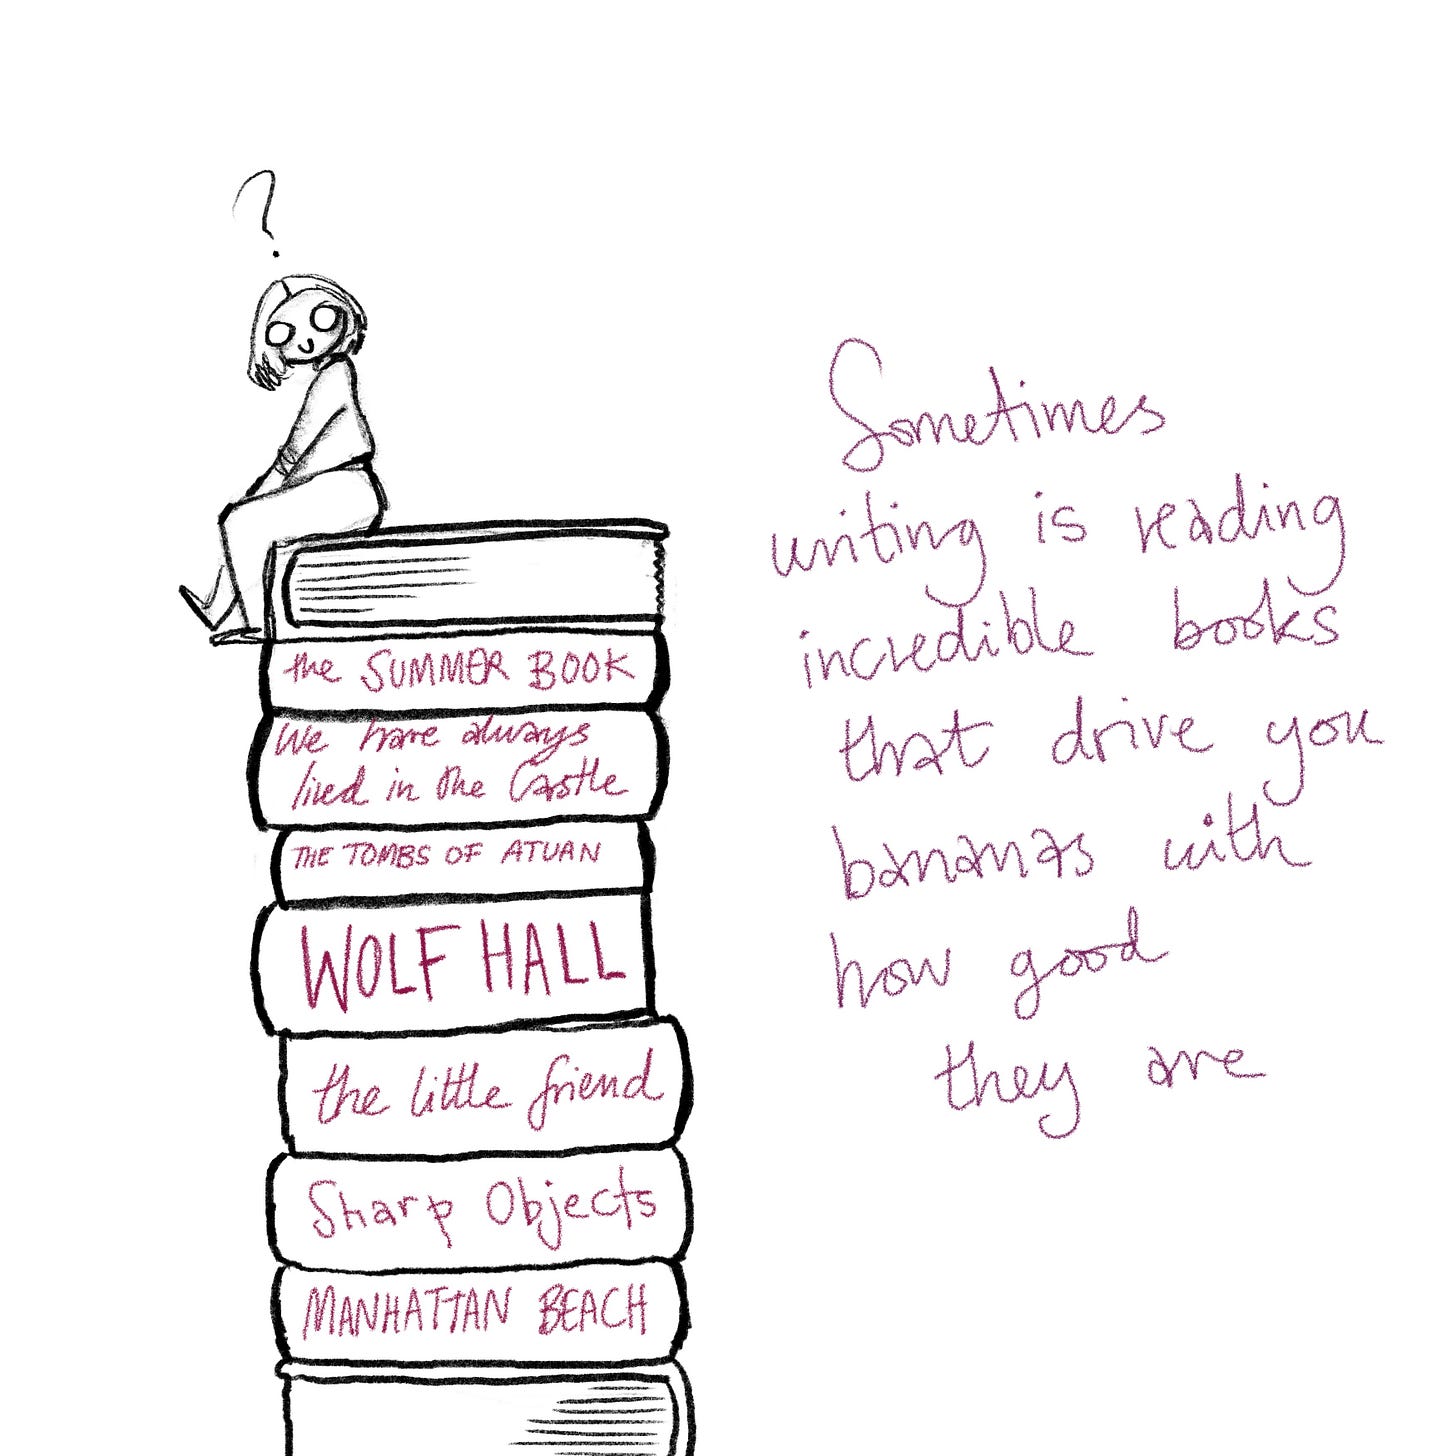 ?
the SUMMER BOOK
We have always
lived in the Castle
THE TOMBS OF ATUAN
WOLF HALL
the little friend
Sharp Objects
MANHATTAN BEACH
Sometimes
writing is reading
incredible books
that drive you
bananas with
how good
they are